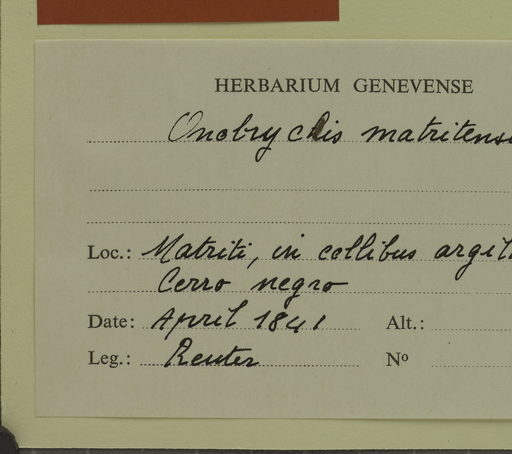 HERBARIUM GENEVENSE
Onobrychis matritensi
Loc.: Matriti, in collibus argil
Cerro negro
Date: April 1841 Alt.:
Leg.: Reuter Nº